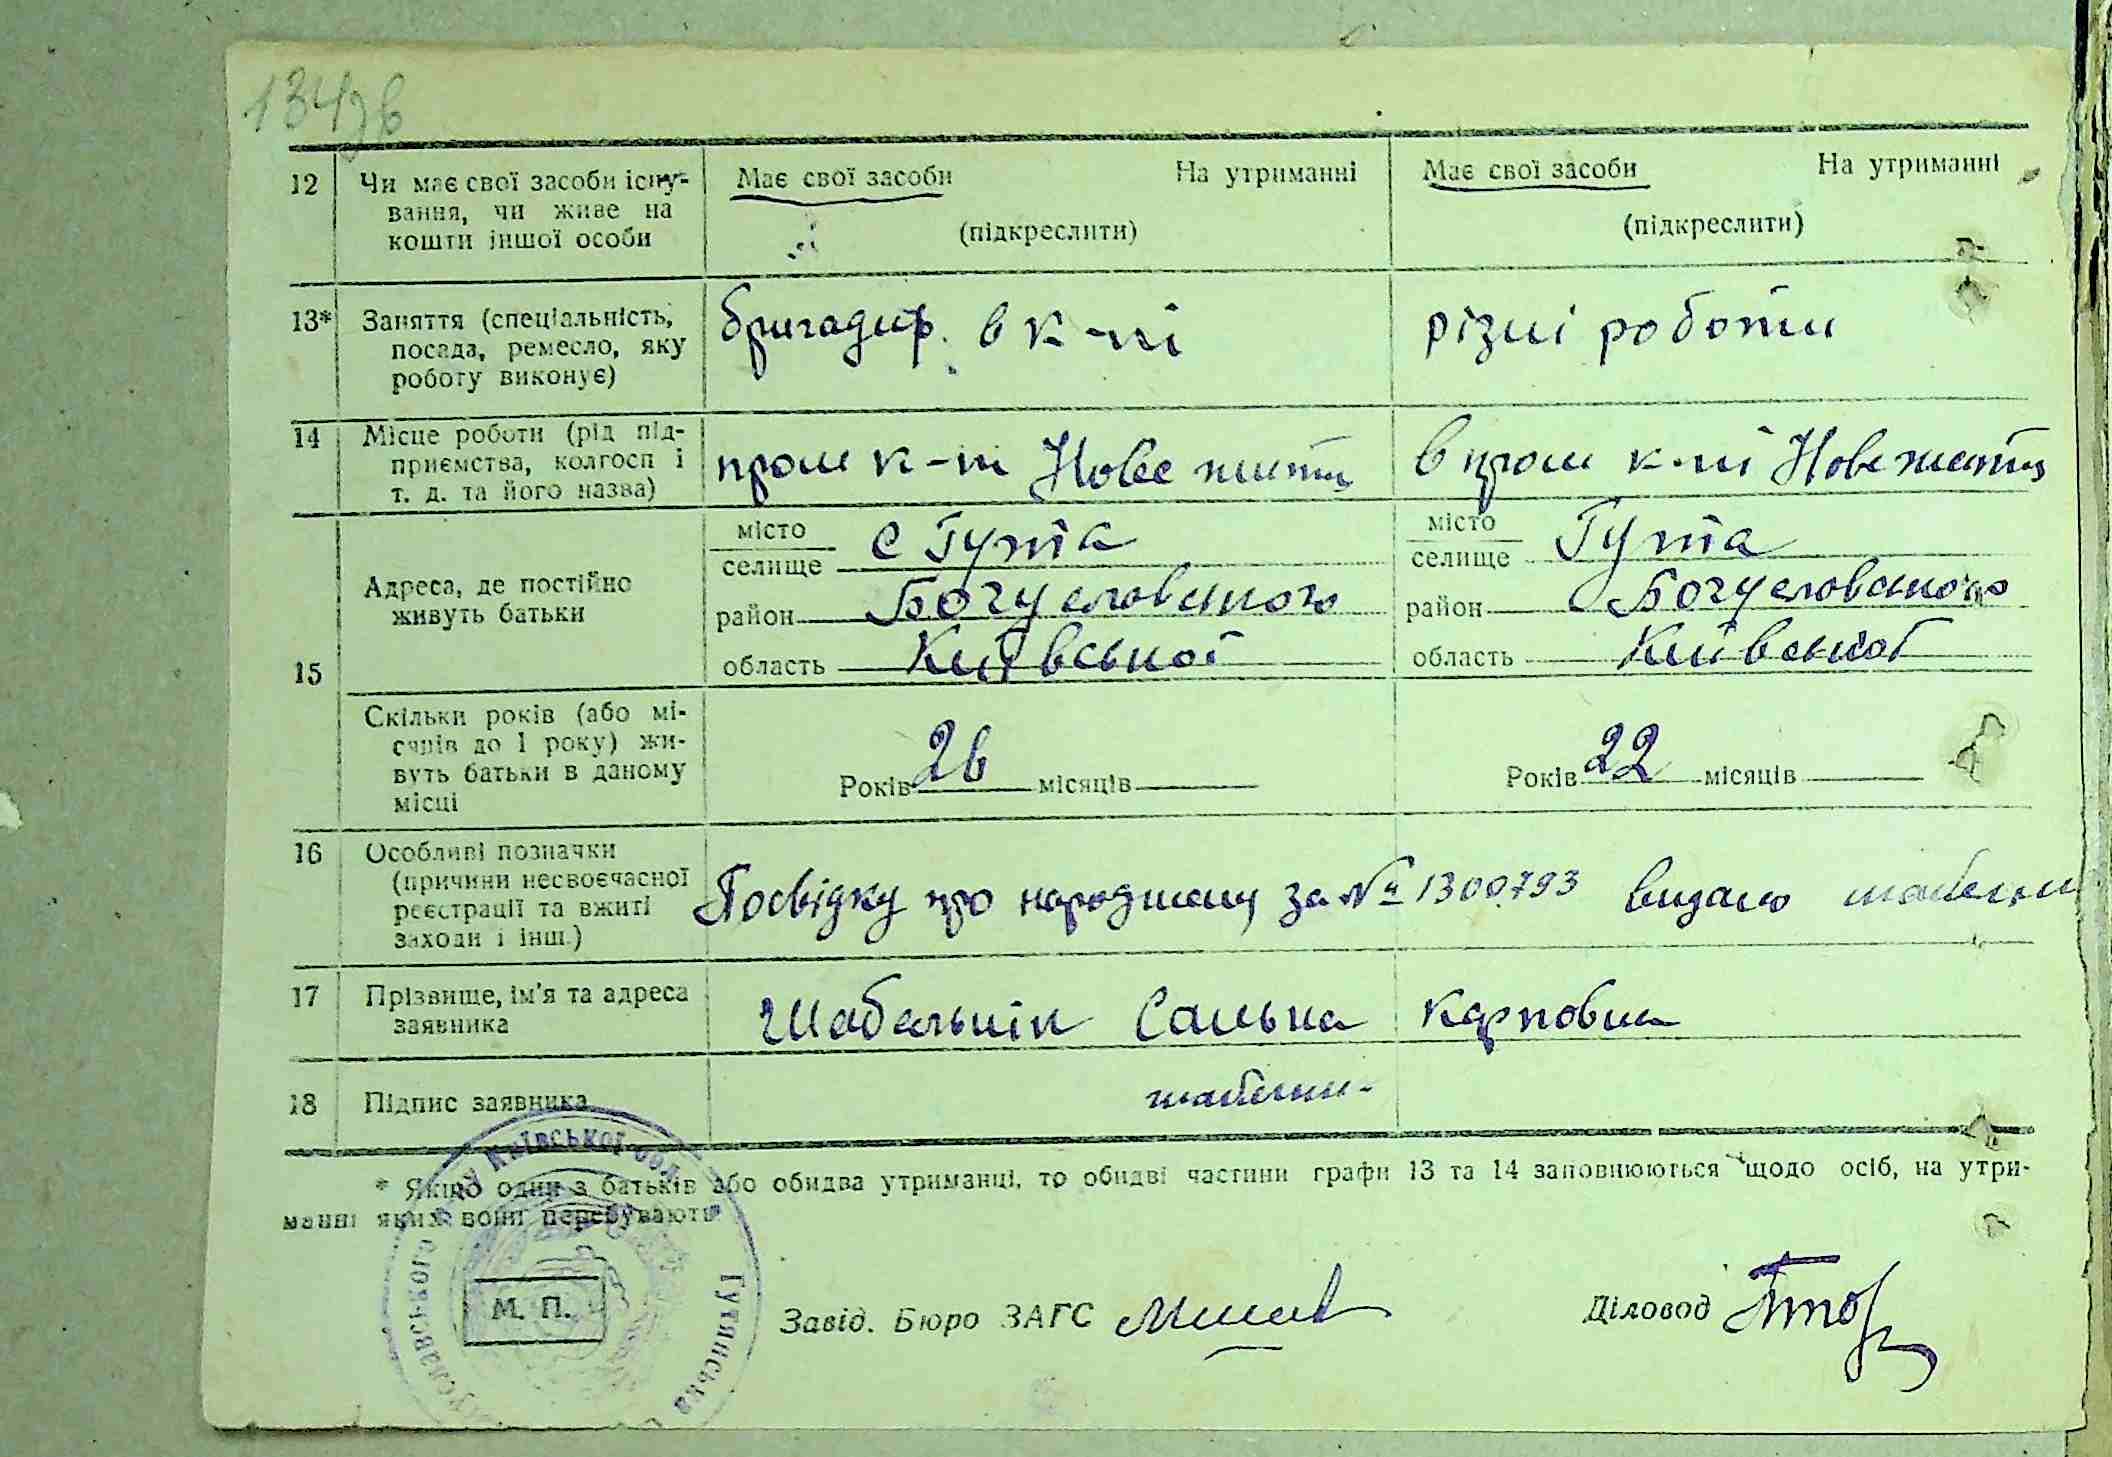 134зв
12 Чи має свої засоби існу- Має свої засоби На утриманні Має свої засоби На утриманні
вання, чи живе на
кошти іншої особи (підкреслити) (підкреслити)
13* Заняття (спеціальність, бригадир в к-пі різні роботи
посада, ремесло, яку
роботу виконує)
14 Місце роботи (рід під- пром к-ті Нове життя в пром к-ті Нове життя
приємства, колгосп і
т. д. та його назва)
15 Адреса, де постійно живуть батьки
місто селище с Гута місто селище Гута
район Богуславського район Богуславського
область Київської область Київської
Скільки років (або мі-
сяців до 1 року) жи-
вуть батьки в даному
місці
Років 26 місяців Років 22 місяців
16 Особливі позначки
(причини несвоєчасної
реєстрації та вжиті
заходи і інш.)
Посвідку про народження за № 1300793 видано
17 Прізвище, ім'я та адреса
заявника
Шабельнік Санька Карповна
18 Підпис заявника
* Якщо один з батьків або обидва утриманці, то обидві частини графи 13 та 14 заповнюються щодо осіб, на утри-
манні яких вони перебувають
М. П.
Завід. Бюро ЗАГС
Діловод
Київської обл
Гутянська